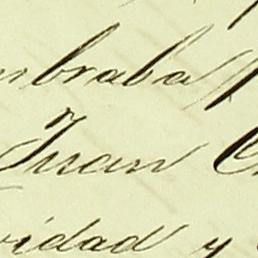 mbraba
Juan
vidad y